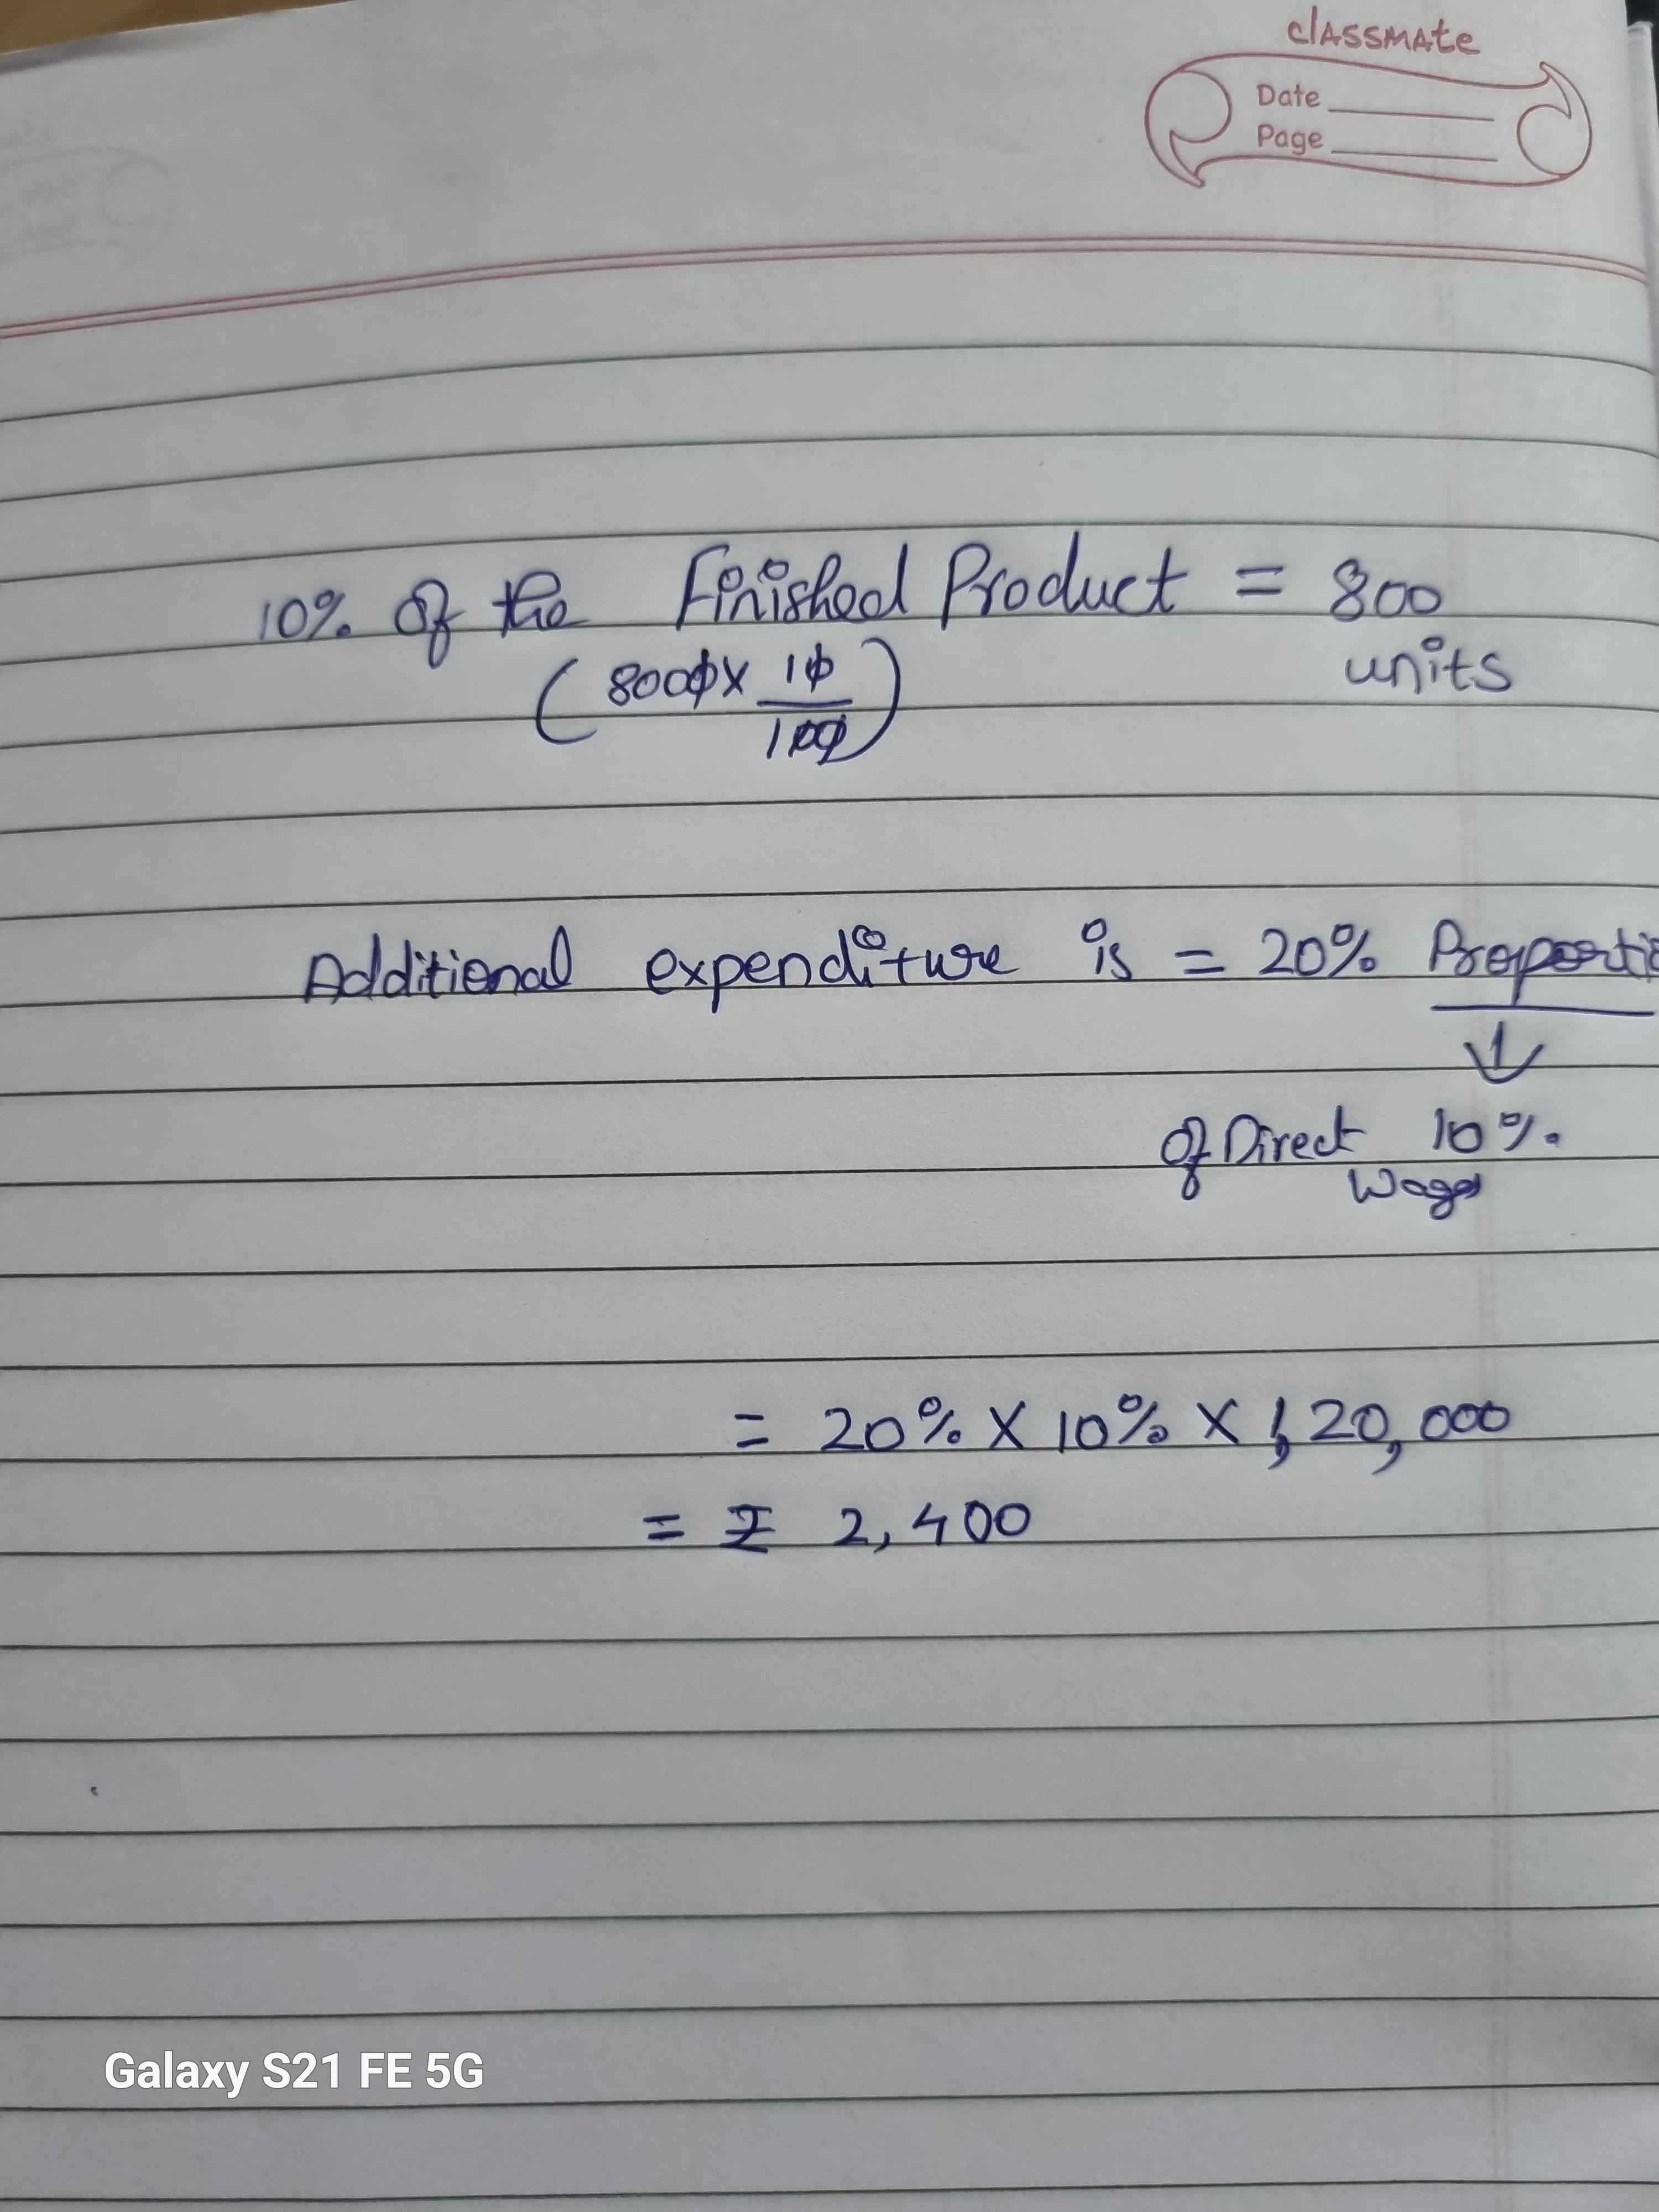 classmate
Date
Page
10% of the Finished Product = 800
units
(8000 x 10/100)
Additional expenditure is = 20% Proportio
of Direct 10%
Wages
= 20% X 10% X 1,20,000
= ₹ 2,400
Galaxy S21 FE 5G